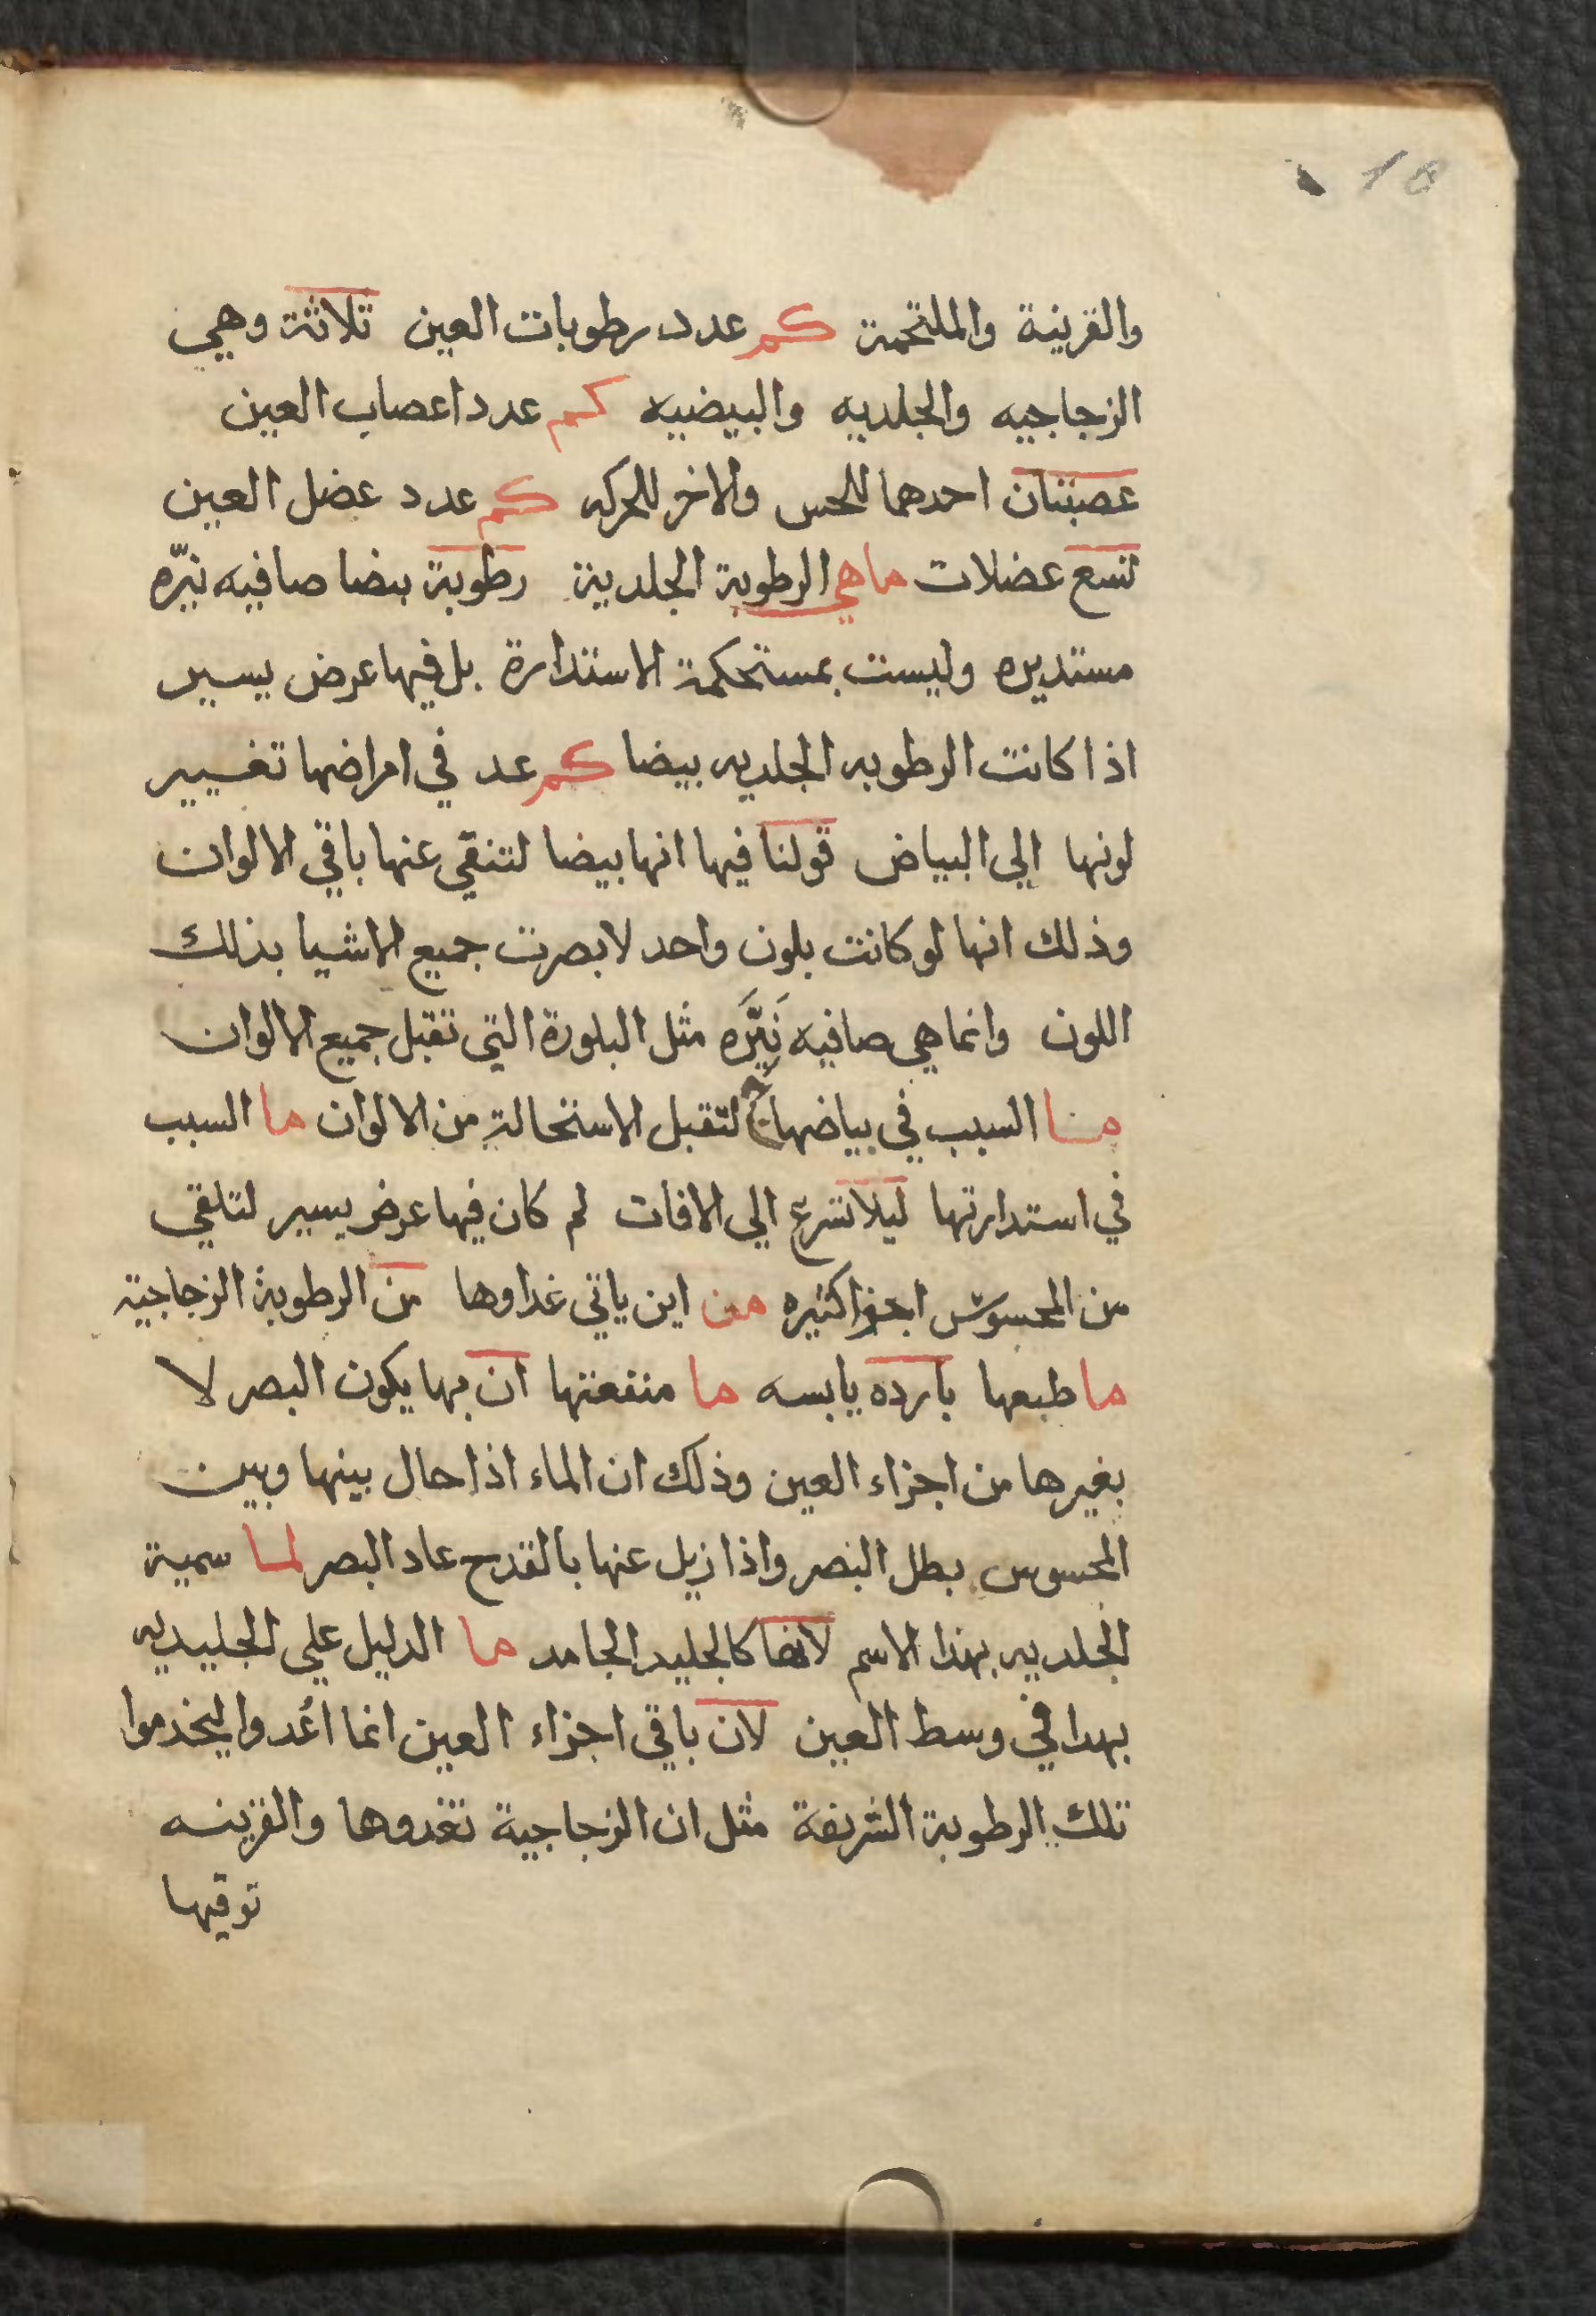 والقرينة والملتحمة كم عدد رطوبات العين تلاثة وهي
الزجاجيه والجلديه والبيضيه كم عدد اعصاب العين
عصبتان احدهما للحس والاخر للحركه كم عدد عضل العين
تسع عضلات ماهي الرطوبة الجلدية رطوبة بيضا صافيه نيّره
مستديره وليست بمستحكمة الاستدارة بل فيها عرض يسير
اذا كانت الرطوبه الجلديه بيضا كم عد في امراضها تغيير
لونها الي البياض قولنا فيها انها بيضا لتنقي عنها باقي الالوان
وذلك انها لو كانت بلون واحد لابصرت جميع الاشيا بذلك
اللون وانما هي صافيه نَيَّره مثل البلورة التي تقبل جميع الالوان
ما السبب في بياضها لتقبل الاستحالة من الالوان ما السبب
في استدارتها ليلا تسرع الي الافات لم كان فيها عرض يسير لتلقي
من المحسوس اجزا كثيره من اين ياتي غداوها من الرطوبة الزجاجية
ما طبعها بارده يابسه ما منفعتها ان بها يكون البصر لا
بغيرها من اجزاء العين وذلك ان الماء اذا حال بينها وبين
المحسوس بطل البصر واذا زيل عنها بالقدح عاد البصر لما سمية
الجلديه بهذا الاسم لانها كالجليد الجامد ما الدليل علي الجليديه
بهدا في وسط العين لان باقي اجزاء العين انما اعُدوا ليخدموا
تلك الرطوبة الشريفة مثل ان الزجاجية تغدوها والقرينه
توقيها